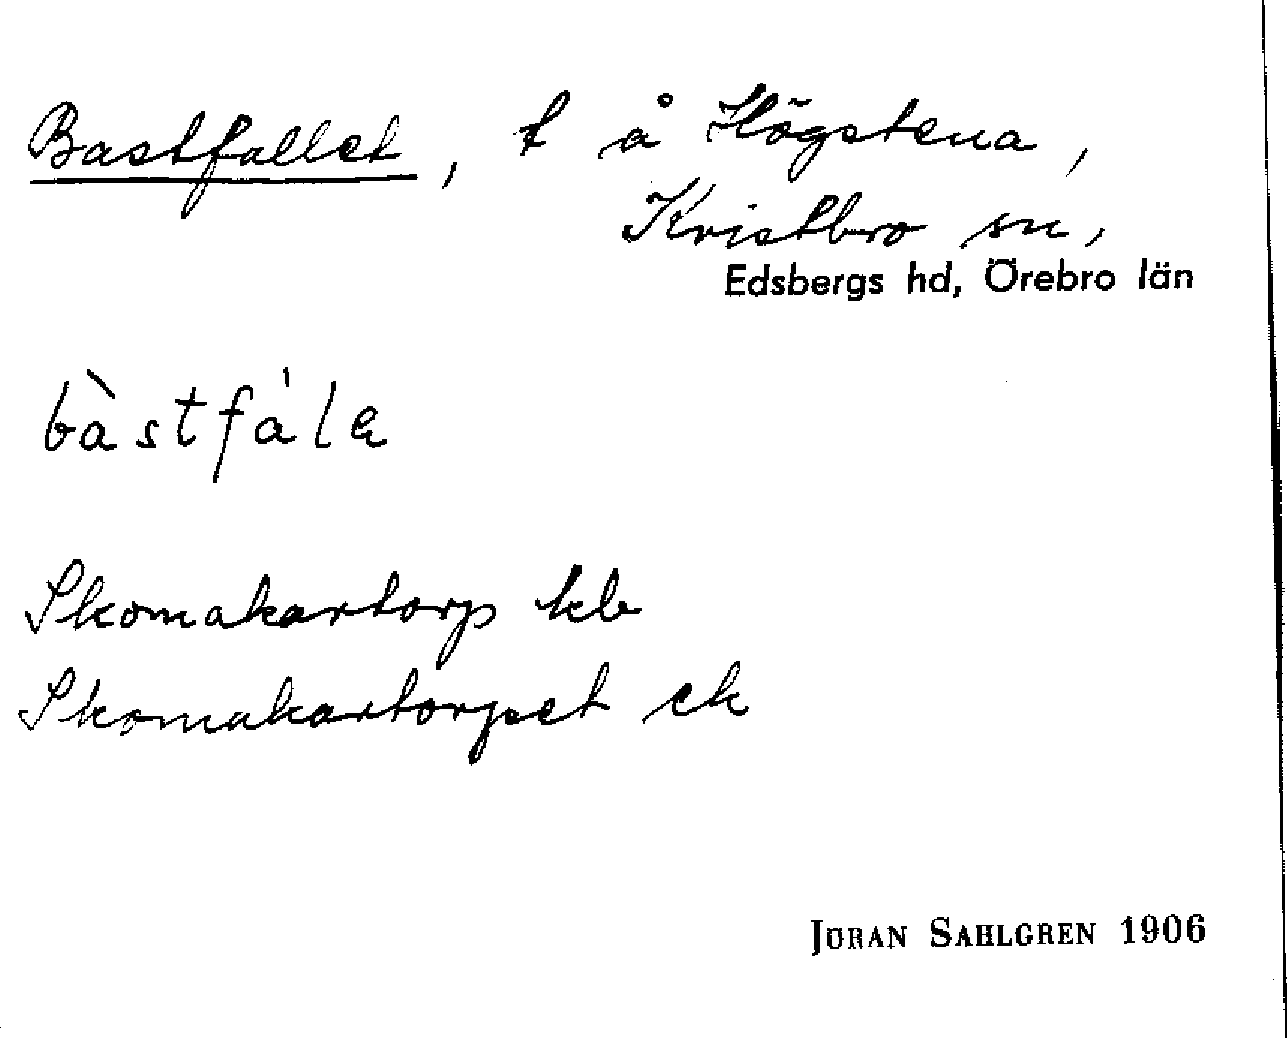 Bastfallet, t å Högstena,
Kristbro sn,
Edsbergs hd, Örebro län
bàstfa̍lą
Skomakartorp kb
Skomakartorpet ek
JÖRAN SAHLGREN 1906